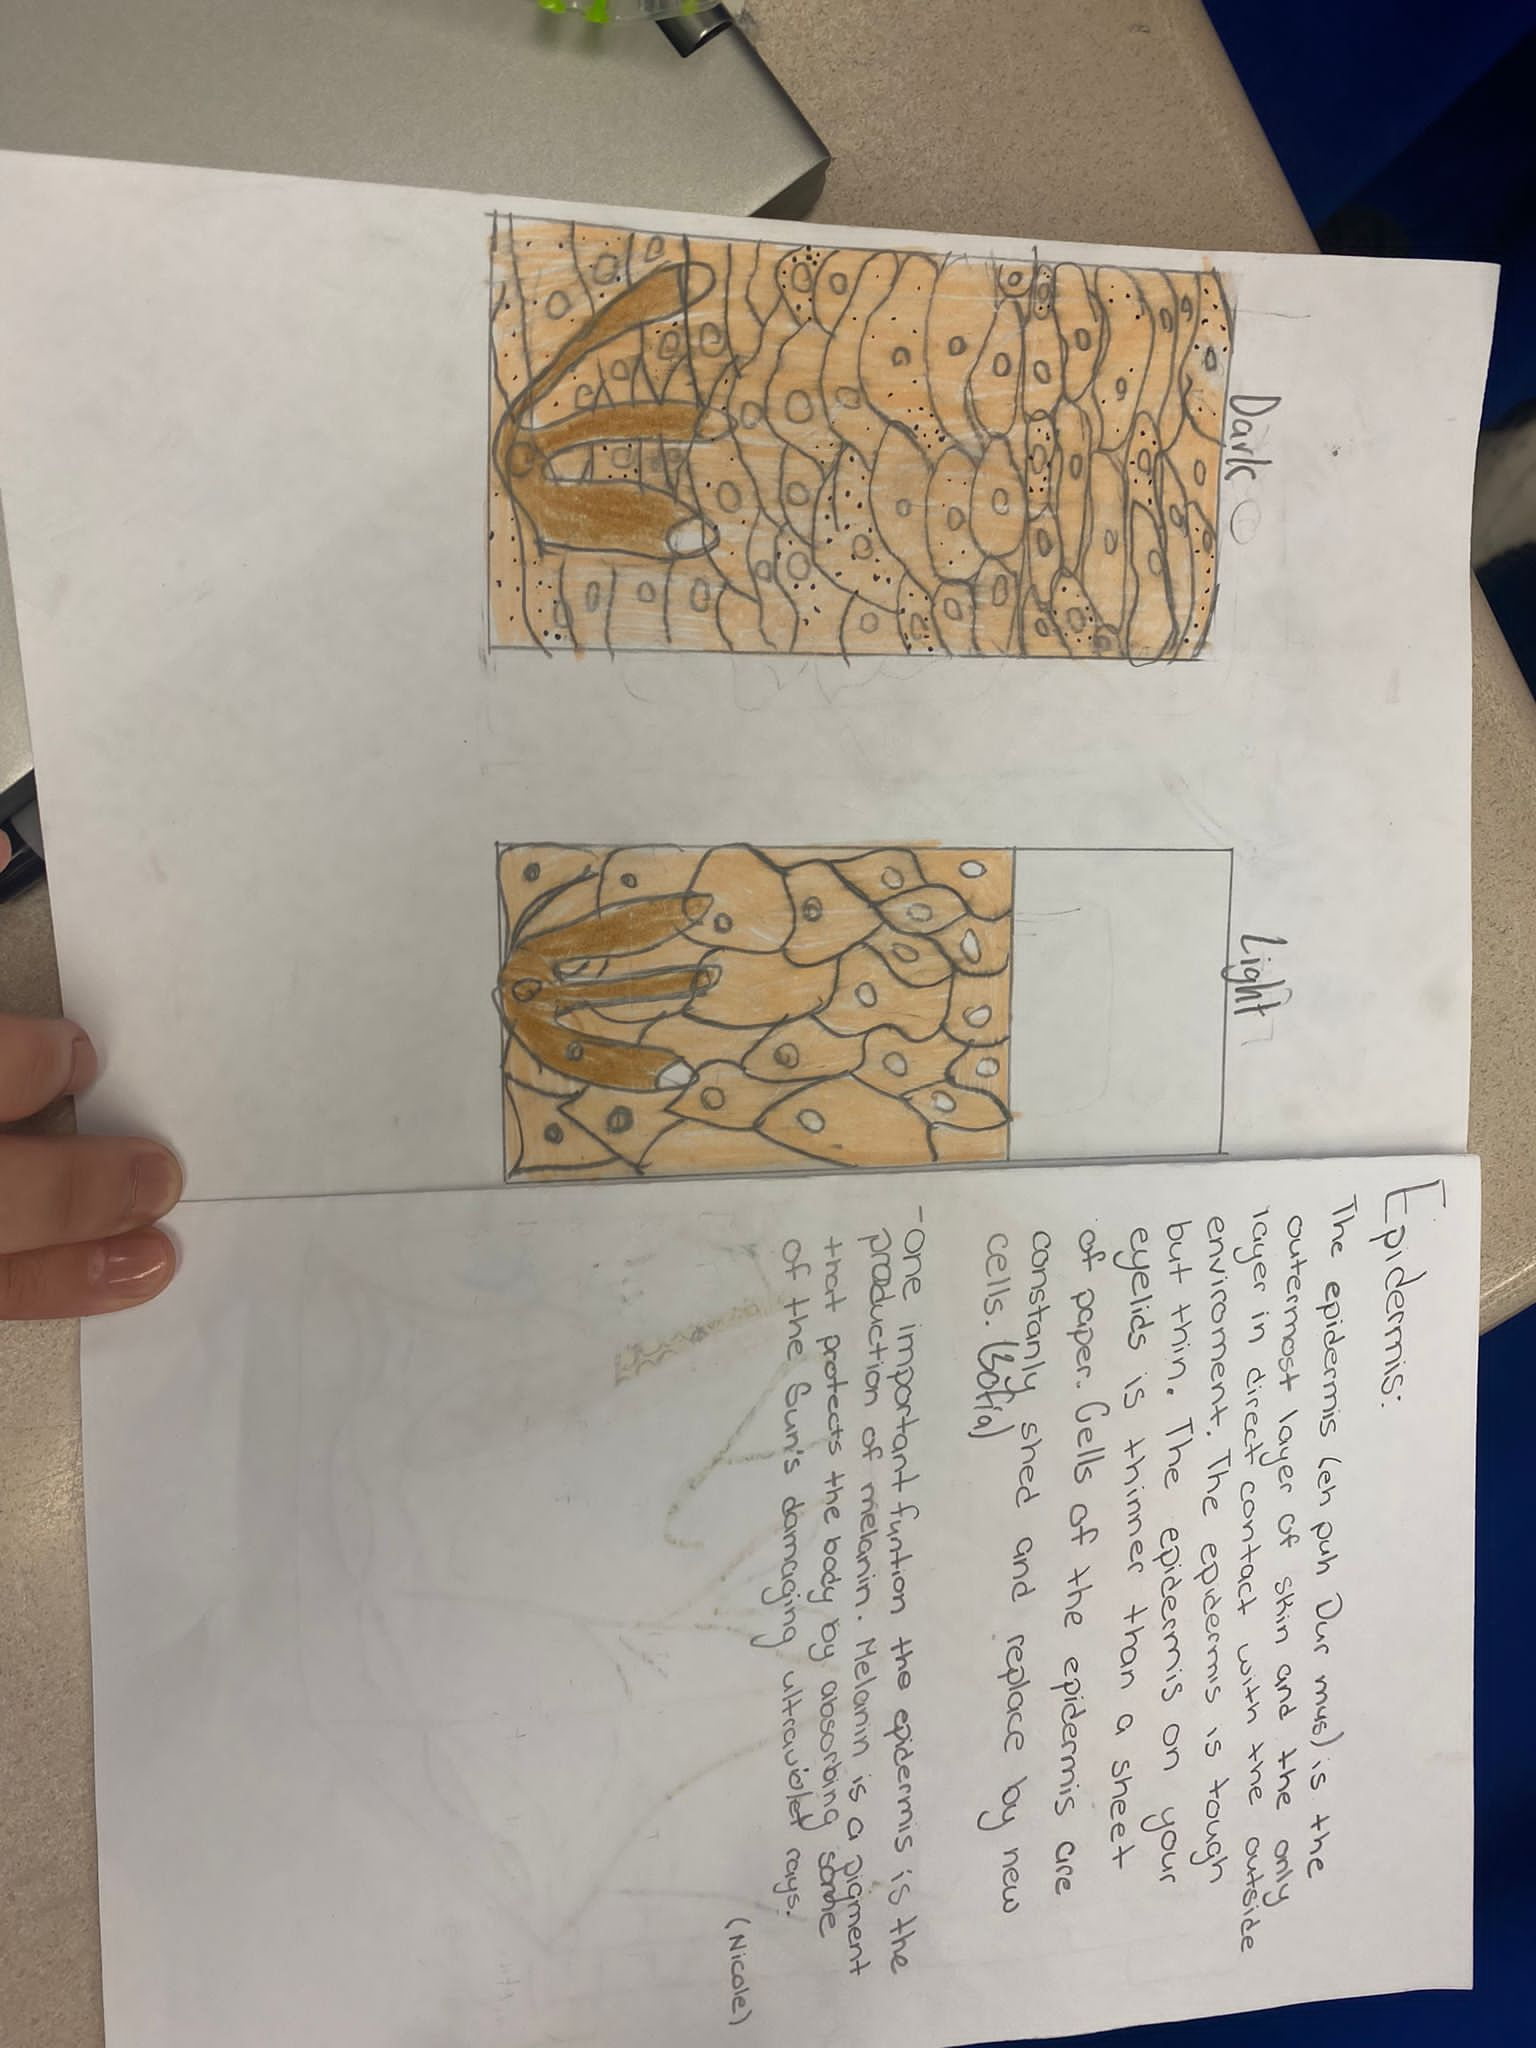 Dark
Light
Epidermis:
The epidermis (eh puh Dur mus) is the
outermost layer of skin and the only
layer in direct contact with the outside
enviroment. The epidermis is tough
but thin. The epidermis on your
eyelids is thinner than a sheet
of paper. Cells of the epidermis are
constanly shed and replace by new
cells. (Sofia)
-One important funtion the epidermis is the
production of melanin. Melanin is a pigment
that protects the body by absorbing some
of the Sun's damaging ultraviolet rays.
(Nicole)